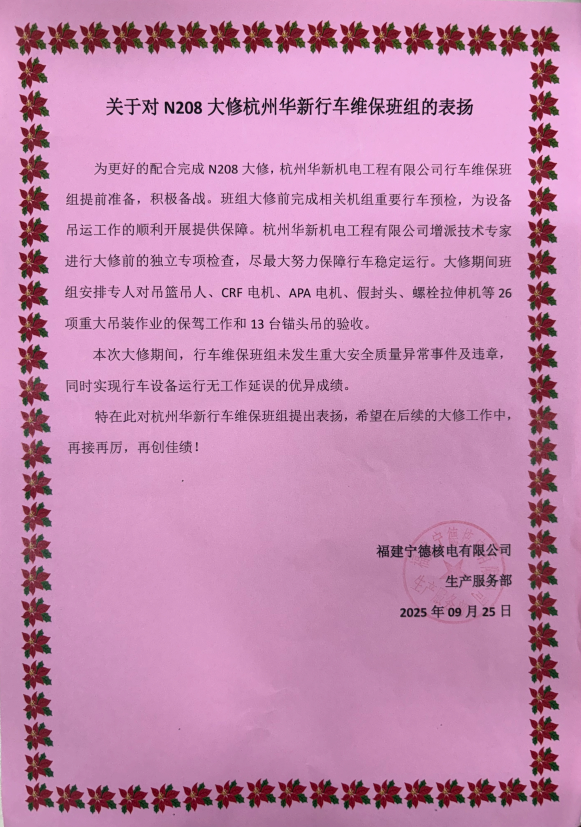 关于对 N208 大修杭州华新行车维保班组的表扬
为更好的配合完成 N208 大修，杭州华新机电工程有限公司行车维保班
组提前准备，积极备战。班组大修前完成相关机组重要行车预检，为设备
吊运工作的顺利开展提供保障。杭州华新机电工程有限公司增派技术专家
进行大修前的独立专项检查，尽最大努力保障行车稳定运行。大修期间班
组安排专人对吊篮吊人、CRF 电机、APA 电机、假封头、螺栓拉伸机等 26
项重大吊装作业的保驾工作和 13 台锚头吊的验收。
本次大修期间，行车维保班组未发生重大安全质量异常事件及违章，
同时实现行车设备运行无工作延误的优异成绩。
特在此对杭州华新行车维保班组提出表扬，希望在后续的大修工作中，
再接再厉，再创佳绩！
福建宁德核电有限公司
生产服务部
2025 年 09 月 25 日